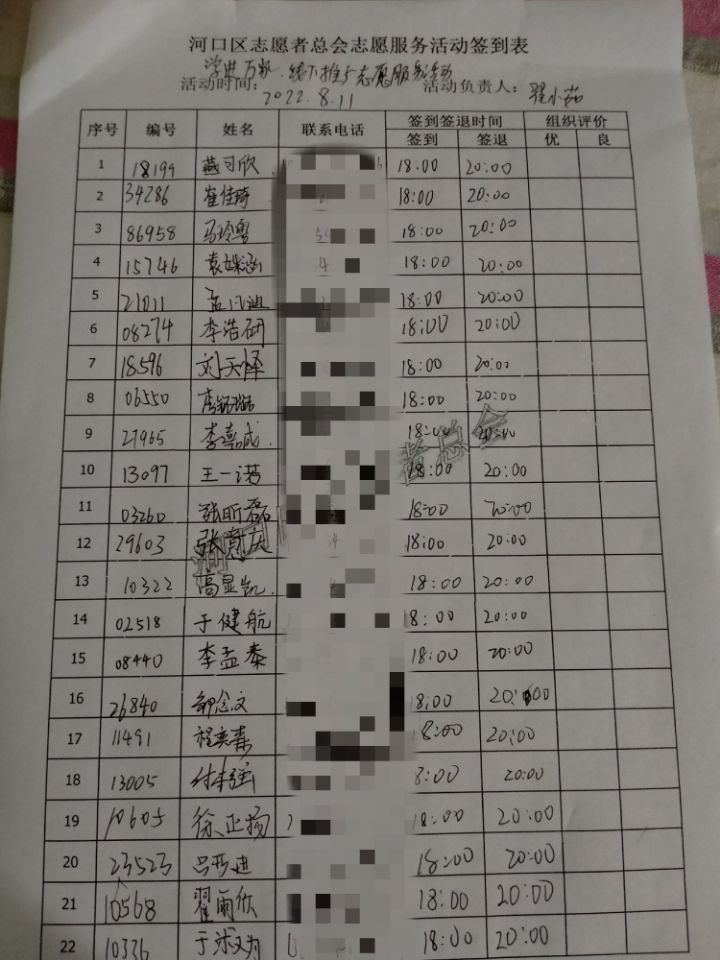 河口区志愿者总会志愿服务活动签到表
线下推广志愿服务活动
活动时间： 2022.8.11 活动负责人： 翟小茹
序号 编号 姓名 联系电话 签到签退时间 组织评价
签到 签退 优 良
1 18199 燕可欣 18:00 20:00
2 34286 崔佳琦 18:00 20:00
3 86958 马玲粤 18:00 20:00
4 15746 18:00 20:00
5 21011 孟 18:00 20:00
6 08274 李浩研 18:00 20:00
7 18596 刘天怿 18:00 20:00
8 06550 18:00 20:00
9 27965 李嘉成 18:00 20:00
10 13097 王一诺 18:00 20:00
11 03260 张昕磊 18:00 20:00
12 29603 张 庆 18:00 20:00
13 10322 高显凯 18:00 20:00
14 02518 于健航 18:00 20:00
15 08440 李孟泰 18:00 20:00
16 26840 邹念文 18:00 20:00
17 11491 程奕森 18:00 20:00
18 13005 8:00 20:00
19 10605 徐正扬 18:00 20:00
20 23523 18:00 20:00
21 10568 翟雨欣 18:00 20:00
22 10336 于 18:00 20:00
者总会